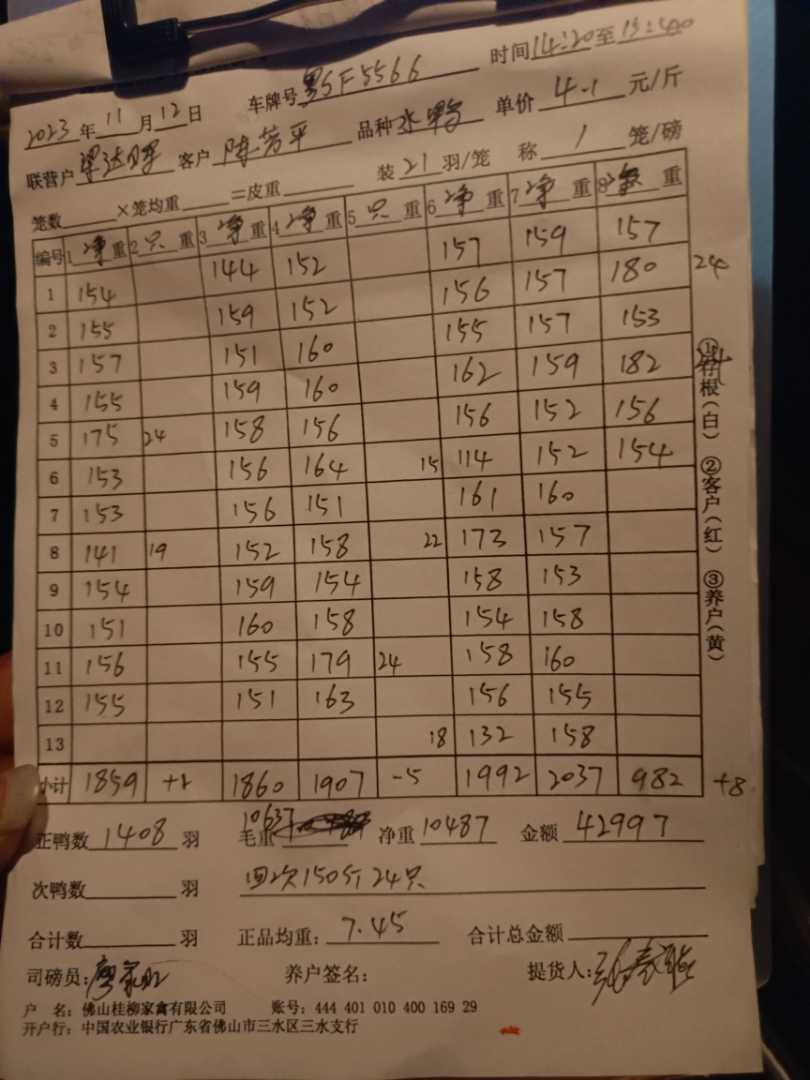 车牌号粤SF5566 时间14:20至15:40
2023年11月12日
联营户梁达晖 客户陈芳平 品种水鸭 单价4.1元/斤
笼数 ×笼均重 =皮重 装21羽/笼 称1笼/磅
编号 1净重 2只重 3净重 4净重 5只重 6净重 7净重 8净重
1 154 144 152 157 159 157
2 155 159 152 156 157 180 24
3 157 151 160 155 157 153
4 155 159 160 162 159 182
5 175 24 158 156 156 152 156
6 153 156 164 15 114 152 154
7 153 156 151 161 160
8 141 19 152 158 22 173 157
9 154 159 154 158 153
10 151 160 158 154 158
11 156 155 179 24 158 160
12 155 151 163 156 155
13 18 132 158
小计 1859 +1 1860 1907 -5 1992 2037 982 +8
①存根(白) ②客户(红) ③养户(黄)
正鸭数1408羽 毛重10637 净重10487 金额42997
次鸭数 羽 四次150斤24只
合计数 羽 正品均重:7.45 合计总金额
司磅员: 养户签名: 提货人:
户 名:佛山桂柳家禽有限公司 账号:444 401 010 400 169 29
开户行:中国农业银行广东省佛山市三水区三水支行